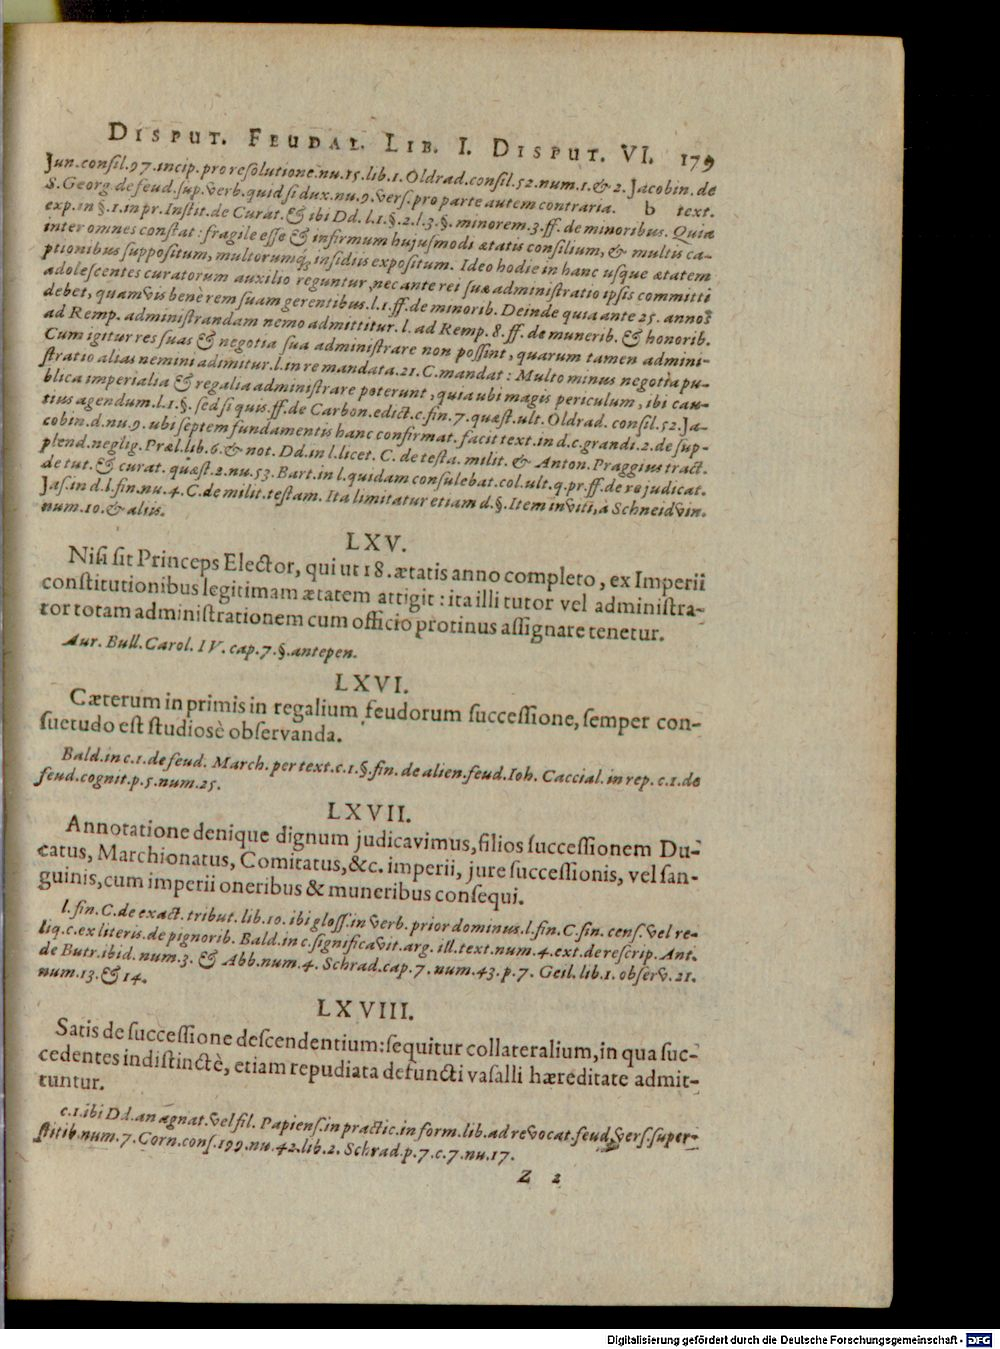 DISPUT. FEUDAL. LIB. I. DISPUT. VI. 179
Jun. consil. 97. incip. pro resolutione. nu. 15. lib. 1. Oldrad. consil. 52. num. 1. & 2. Jacobin. de
S. Georg. de feud. sup. verb. quid si dux. nu. 9. vers. pro parte autem contraria. b text.
exp. in §. 1. in pr. Instit. de Curat. & ibi Dd. l. 1. §. 2. l. 3. §. minorem. 3. ff. de minoribus. Quia
inter omnes constat: fragile esse & infirmum hujusmodi ætatis consilium, & multis ca-
ptionibus suppositum, multorumq́; insidiis expositum. Ideo hodie in hanc usque ætatem
adolescentes curatorum auxilio reguntur, nec ante rei suæ administratio ipsis committi
debet, quamvis benè rem suam gerentibus. l. 1. ff. de minorib. Deinde quia ante 25. annos
ad Remp. administrandam nemo admittitur. l. ad Remp. 8. ff. de munerib. & honorib.
Cum igitur res suas & negotia sua administrare non possint, quarum tamen admini-
stratio alias nemini adimitur. l. in re mandata. 21. C. mandat: Multo minus negotia pu-
blica imperialia & regalia administrare poterunt, quia ubi magis periculum, ibi cau-
tius agendum. l. 1. §. sed si quis. ff. de Carbon. edict. c. fin. 7. quæst. ult. Oldrad. consil. 52. Ja-
cobin. d. nu. 9. ubi septem fundamentis hanc confirmat. facit text. in d. c. grandi. 2. de sup-
plend. neglig. Præl. lib. 6. & not. Dd. in l. licet. C. de testa. milit. & Anton. Praggius tract.
de tut. & curat. quæst. 2. nu. 53. Bart. in l. quidam consulebat. col. ult. q. pr. ff. de re judicat.
Jas. in d. l. fin. nu. 4. C. de milit. testam. Ita limitatur etiam d. §. Item inviti, à Schneidvvin.
num. 10. & aliis.
LXV.
Nisi sit Princeps Elector, qui ut 18. ætatis anno completo, ex Imperii
constitutionibus legitimam ætatem attigit: ita illi tutor vel administra-
tor totam administrationem cum officio protinus assignare tenetur.
Aur. Bull. Carol. IV. cap. 7. §. antepen.
LXVI.
Cæterum in primis in regalium feudorum successione, semper con-
suetudo est studiosè observanda.
Bald. in c. 1. de feud. March. per text. c. 1. §. fin. de alien. feud. Ioh. Caccial. in rep. c. 1. de
feud. cognit. p. 5. num. 25.
LXVII.
Annotatione denique dignum judicavimus, filios successionem Du-
catus, Marchionatus, Comitatus, &c. imperii, jure successionis, vel san-
guinis, cum imperii oneribus & muneribus consequi.
l. fin. C. de exact. tribut. lib. 10. ibi gloss. in verb. prior dominus. l. fin. C. sin. cens. vel re-
liq. c. ex literis. de pignorib. Bald. in c. significavit. arg. ill. text. num. 4. ext. de rescrip. Ant.
de Butr. ibid. num. 3. & Abb. num. 4. Schrad. cap. 7. num. 43. p. 7. Geil. lib. 1. observ. 21.
num. 13. & 14.
LXVIII.
Satis de successione descendentium: sequitur collateralium, in qua suc-
cedentes indistinctè, etiam repudiata defuncti vasalli hæreditate admit-
tuntur.
c. 1. ibi Dd. an agnat. vel fil. Papiens. in practic. in form. lib. ad revocat. feud. vers. super-
stitib. num. 7. Corn. cons. 199. nu. 42. lib. 2. Schrad. p. 7. c. 7. nu. 17.
Z 2
Digitalisierung gefördert durch die Deutsche Forschungsgemeinschaft - DFG